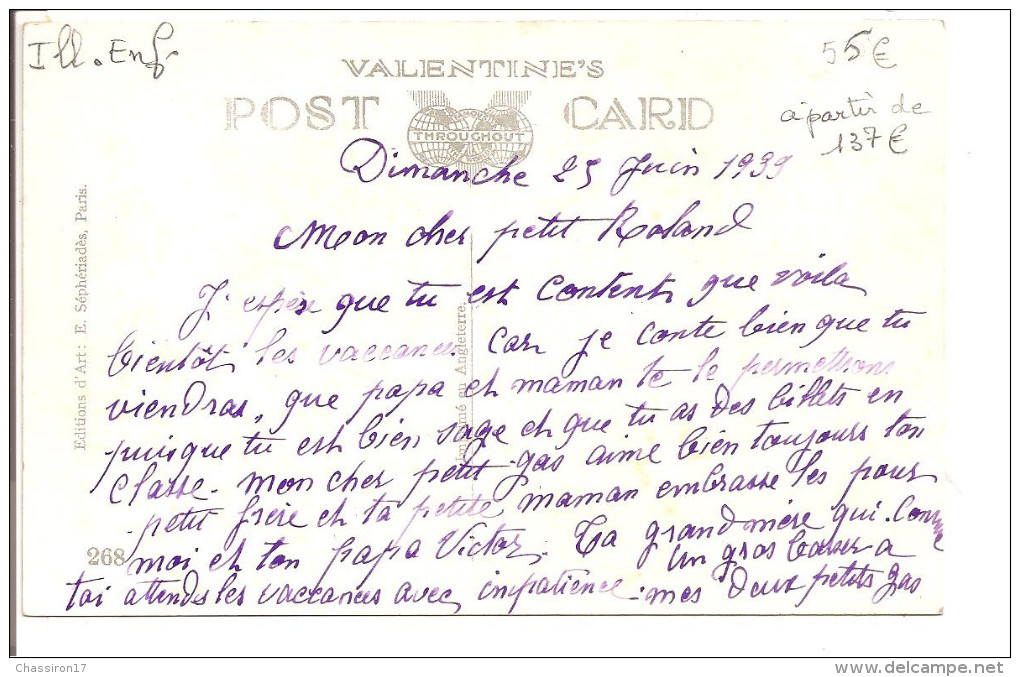 Ill. Enf.
55€
VALENTINE'S
POST CARD
THROUGHOUT
à partir de
137€
Dimanche 25 Juin 1939
Mon cher petit Roland
J'espère que tu est content que voila
bientôt les vaccances car je conte bien que tu
viendras, que papa et maman te le permettrons
puisque tu est bien sage et que tu as des billets en
classe. mon cher petit gas aime bien toujours ton
petit frère et ta petite maman embrasse les pour
moi et ton papa Victor. Ta grandmère qui comme
Un gros baiser a
toi attends les vaccances avec impatience. mes deux petits gas
Editions d'Art: E. Séphériadès, Paris.
Imprimé en Angleterre.
268
Chassiron17
www.delcampe.net